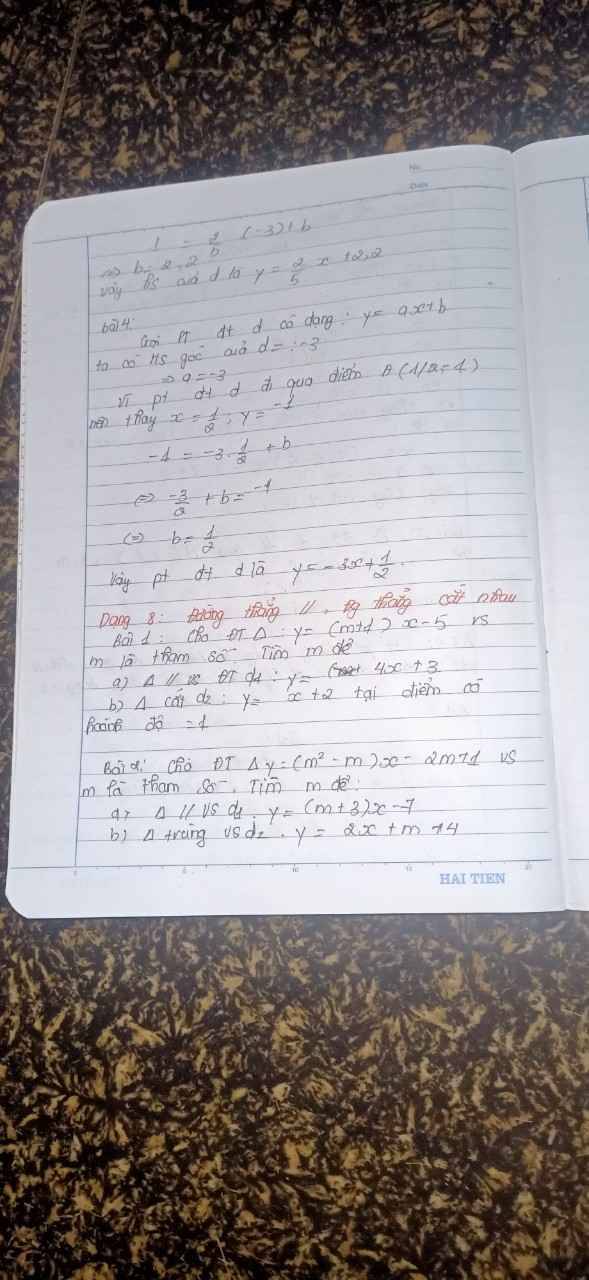 No.
Date
1 = 2/5 (-3) + b
=> b = 2,2
vậy hs của d là y = 2/5 x + 2,2
bài 4:
Gọi pt đt d có dạng: y = ax + b
ta có HS góc của d = : -3
=> a = -3
Vì pt đt d đi qua điểm A (1/2; -1)
nên thay x = 1/2; y = -1
-1 = -3. 1/2 + b
(=) -3/2 + b = -1
(=) b = 1/2
Vậy pt đt d là y = -3x + 1/2.
Dạng 8: Đường thẳng //, Đg thẳng cắt nhau
Bài 1: Cho ĐT Δ: y = (m+1) x - 5 vs
m là tham số. Tìm m để
a) Δ // vs ĐT d1: y = 4x + 3
b) Δ cắt d2: y = x + 2 tại điểm có
hoành độ = 1
Bài 2: Cho ĐT Δ y = (m² - m)x - 2m+1 vs
m là tham số. Tìm m để:
a, Δ // vs d1: y = (m+3)x - 7
b) Δ trùng vs d2: y = 2x + m + 4
HAI TIEN